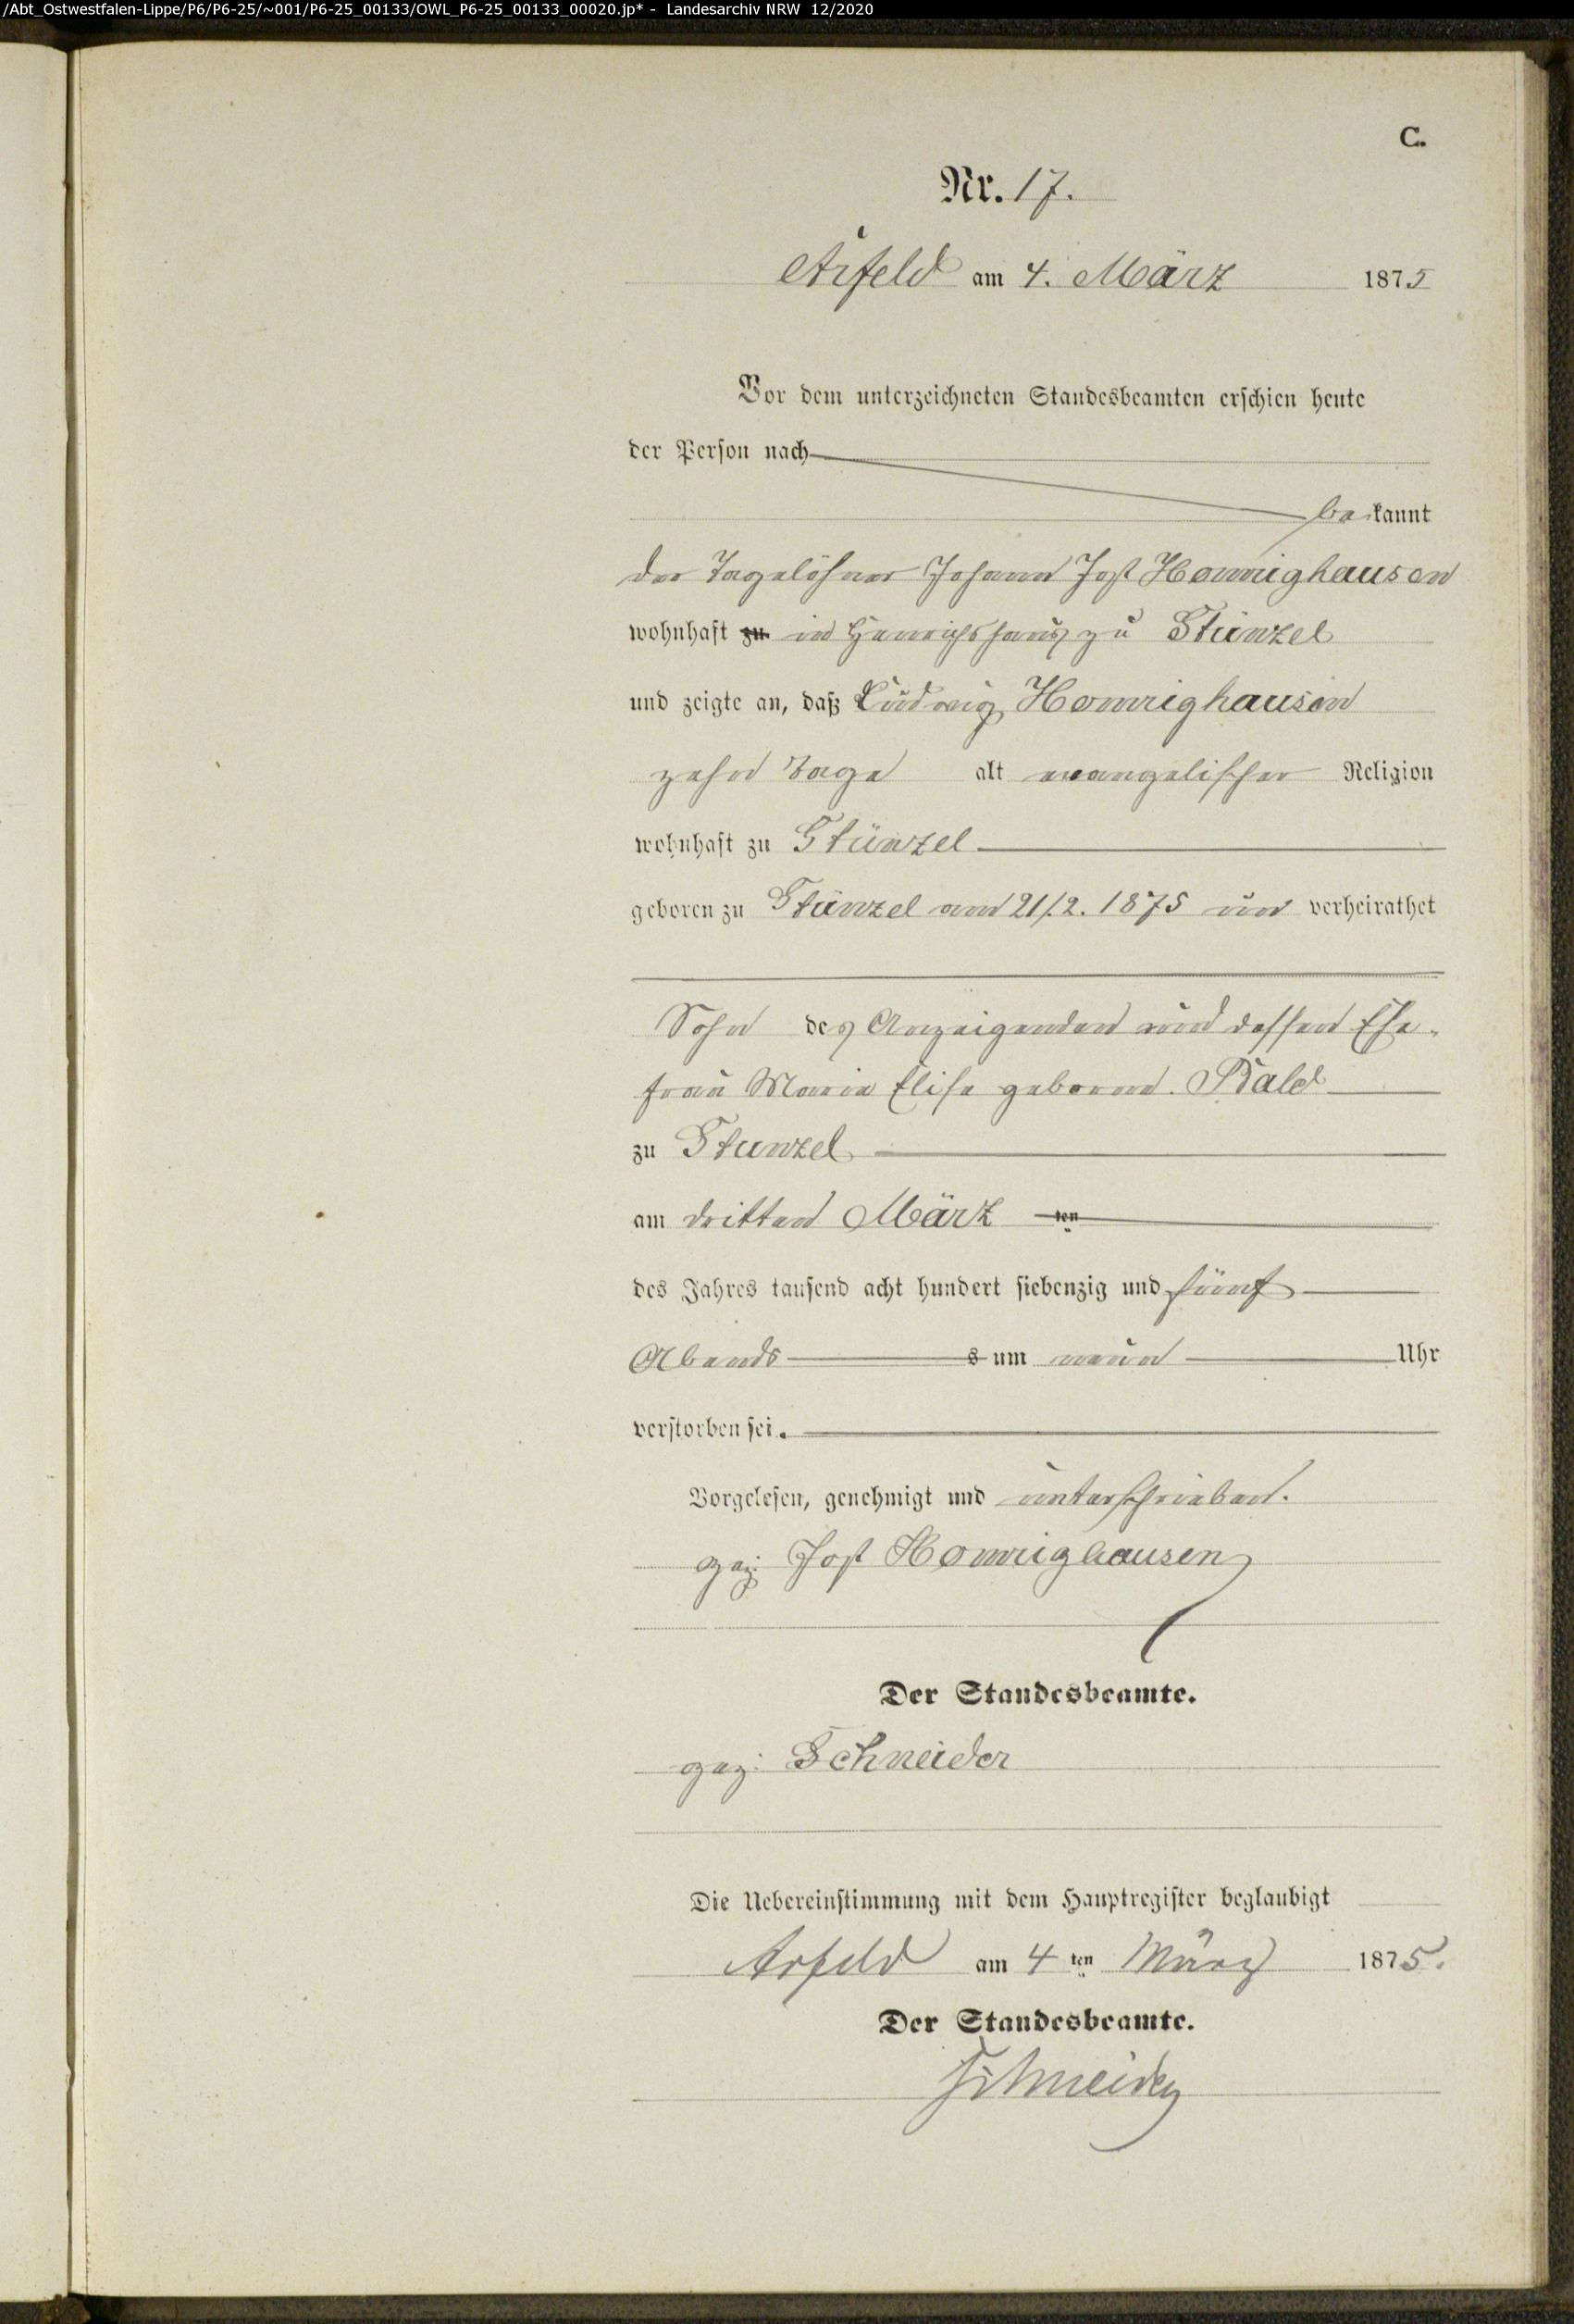 /Abt_Ostwestfalen-Lippe/P6/P6-25/~001/P6-25_00133/OWL_P6-25_00133_00020.jp* - Landesarchiv NRW 12/2020
C.
Nr. 17.
Arfeld am 4. März 1875
Vor dem unterzeichneten Standesbeamten erschien heute
der Person nach
bekannt
der Tagelöhner Johann Jost Homrighausen
wohnhaft zu in Henrichshaus zu Stünzel
und zeigte an, daß Ludwig Homrighausen
zehn Tage alt evangelischer Religion
wohnhaft zu Stünzel
geboren zu Stünzel am 21/2. 1875 un verheirathet
Sohn des Anzeigenden und dessen Ehe-
frau Maria Elise geborene. Bald
zu Stunzel
am dritten März ten
des Jahres tausend acht hundert siebenzig und fünf
Abends s um neun Uhr
verstorben sei.
Vorgelesen, genehmigt und unterschrieben.
gez: Jost Homrighausen
Der Standesbeamte.
gez: Schneider
Die Uebereinstimmung mit dem Hauptregister beglaubigt
Arfeld am 4 ten März 1875.
Der Standesbeamte.
Schneider